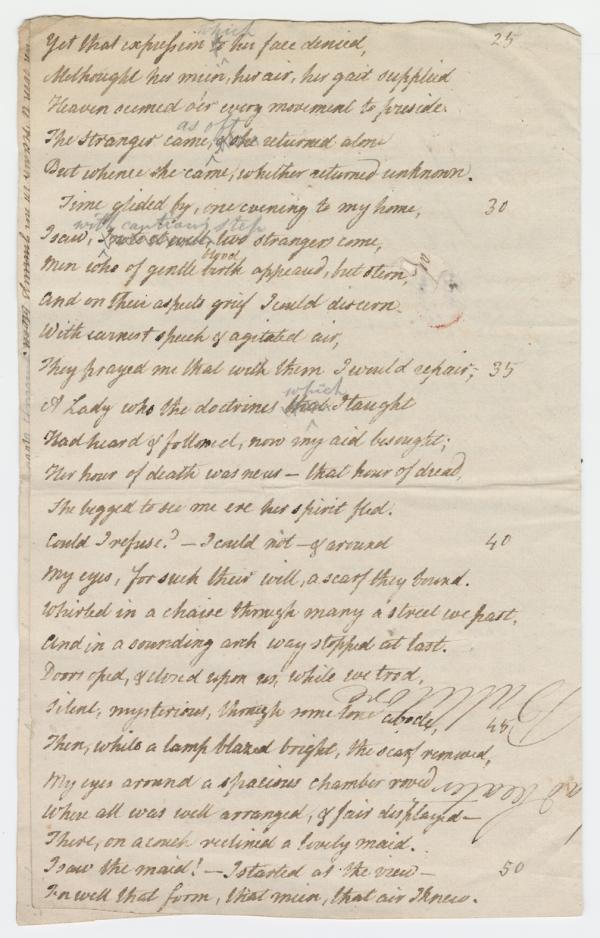 which
Yet that expression to her face denied, 25
Methought her mien, her air, her gait supplied
Heaven seemed o'er every movement to preside.
as oft
The stranger came, & she returned alone
But whence she came, whither returned unknown.
Time glided by, one evening to my home, 30
with cautious step
I saw, two strangers come,
blood
Men who of gentle birth appeared, but stern,
And on their aspects grief I could discern.
With earnest speech & agitated air,
They prayed me that with them I would repair; 35
which
A Lady who the doctrines that I taught
Had heard & followed, now my aid besought;
Her hour of death was near – that hour of dread,
She begged to see me ere her spirit fled.
Could I refuse? – I could not – & around 40
My eyes, for such their will, a scarf they bound.
Whirled in a chaise through many a street we past,
And in a sounding arch way stopped at last.
Doors oped, & closed upon us, while we trod,
Silent, mysterious, through some lone abode, 45
Then, while a lamp blazed bright, the scarf removed,
My eyes around a spacious chamber roved
Where all was well arranged, & fair displayed –
There, on a couch reclined a lovely maid.
I saw the maid! – I started at the view – 50
For well that form, that mien, that air I knew.